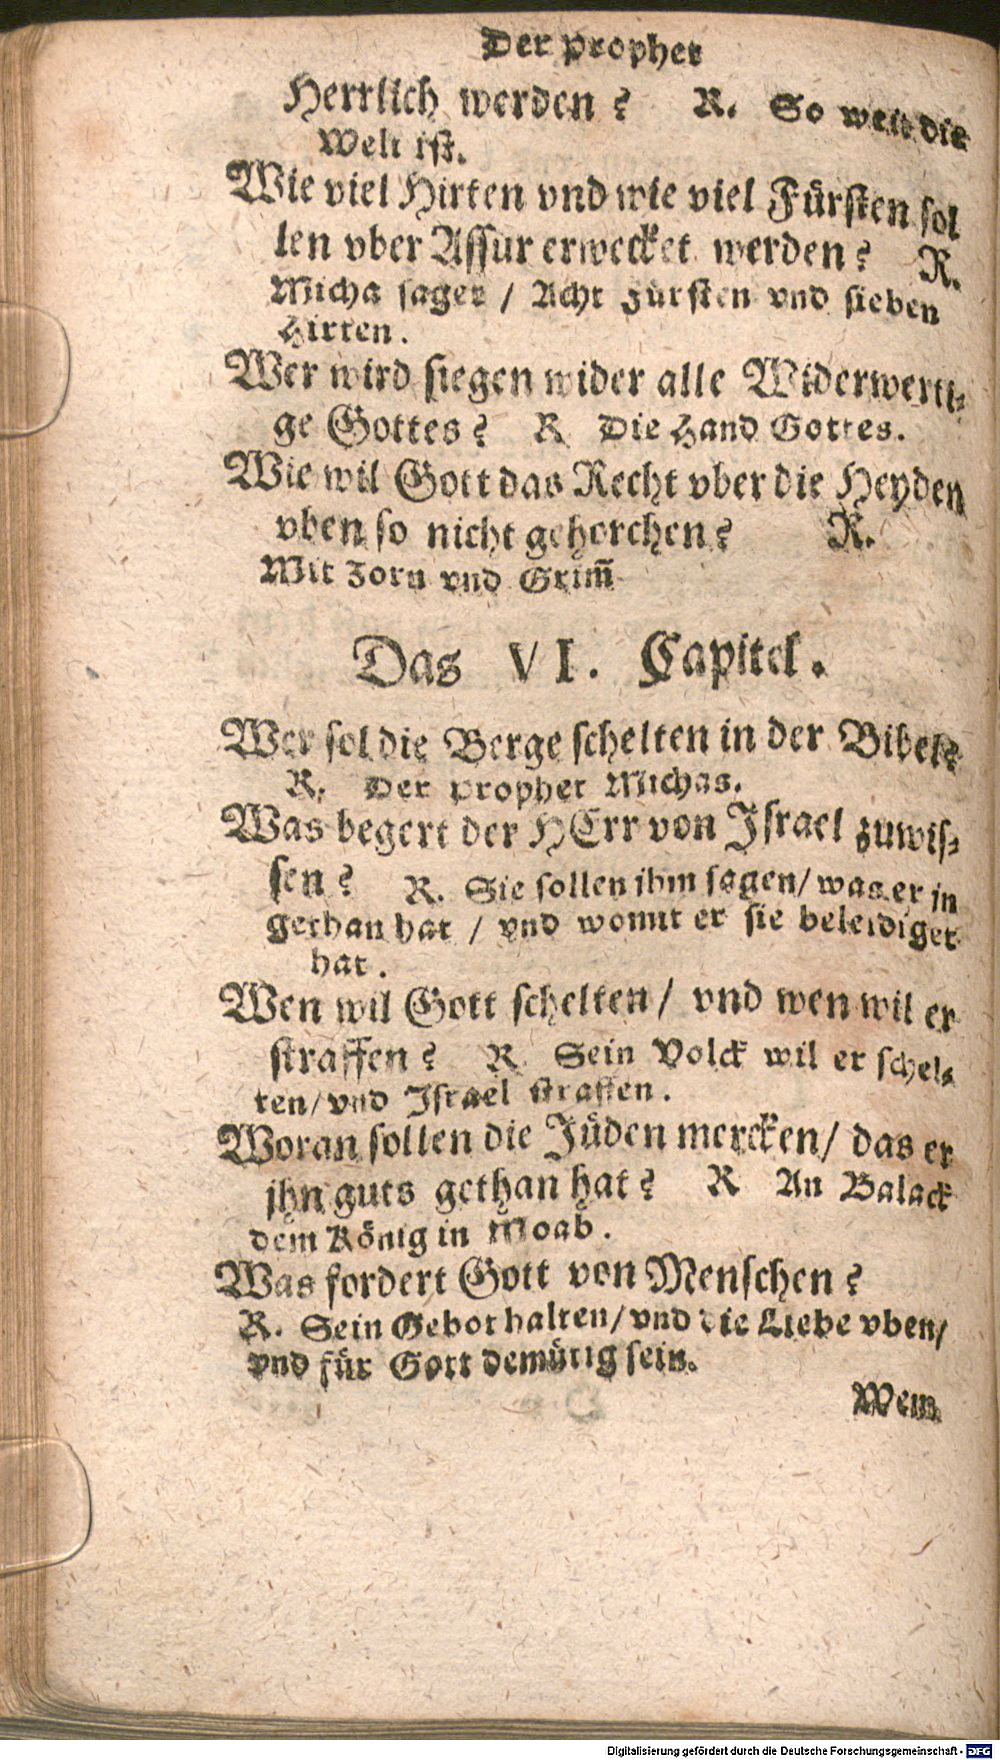 Der Prophet
Herrlich werden? R. So weit die
Welt ist.
Wie viel Hirten vnd wie viel Fürsten sol
len vber Assur erwecket werden? R.
Micha saget / Acht Fürsten vnd sieben
Hirten.
Wer wird siegen wider alle Widerwerti-
ge Gottes? R Die Hand Gottes.
Wie wil Gott das Recht vber die Heyden
vben so nicht gehorchen? R.
Mit Zorn vnd Grim̃
Das VI. Capitel.
Wer sol die Berge schelten in der Bibel?
R. Der Prophet Michas.
Was begert der HErr von Israel zuwis-
sen? R. Sie sollen ihm sagen/ was er jn
gethan hat / vnd womit er sie beleidiget
hat.
Wen wil Gott schelten/ vnd wen wil er
straffen? R Sein Volck wil er schel-
ten/ vnd Israel straffen.
Woran sollen die Jüden mercken/ das er
jhn guts gethan hat? R An Balack
dem König in Moab.
Was fordert Gott von Menschen?
R. Sein Gebot halten/ vnd die Liebe vben/
vnd für Gott demütig sein.
Wem
Digitalisierung gefördert durch die Deutsche Forschungsgemeinschaft - DFG